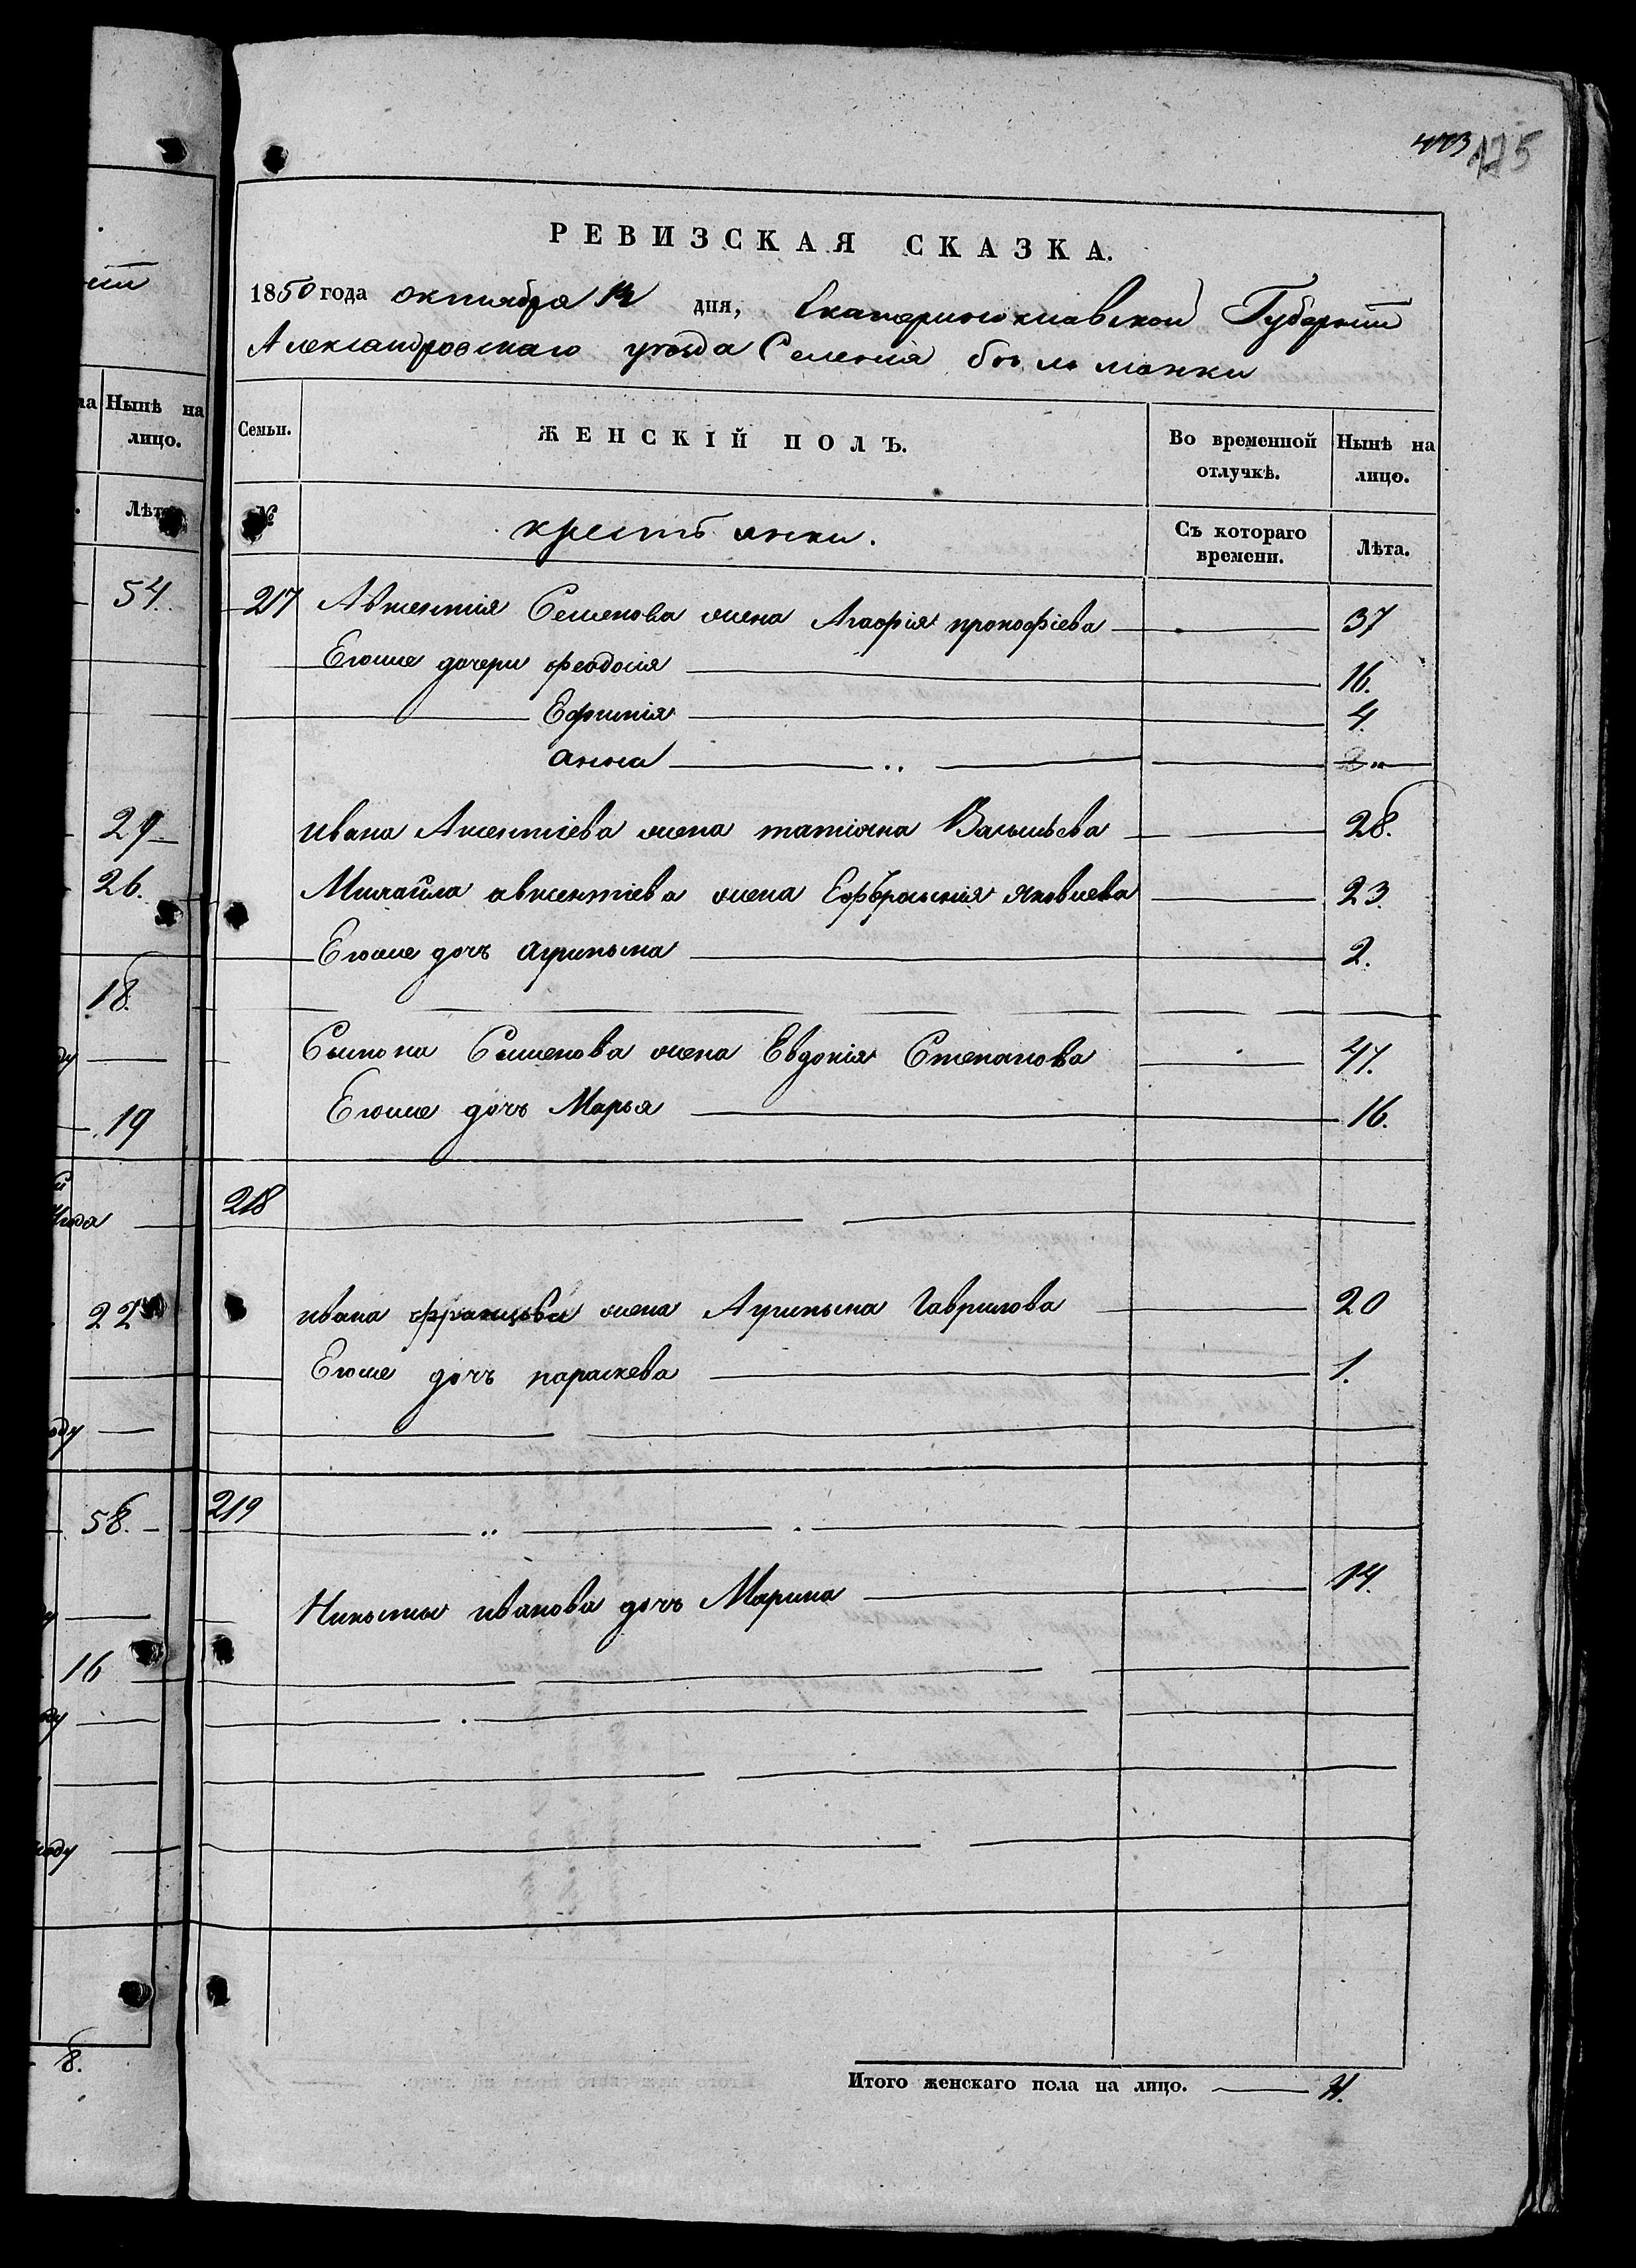 125
РЕВИЗСКАЯ СКАЗКА.
1850 года октября дня, Екатеринославской Губернии
Александровскаго уезда Селения белманки
Семьи. ЖЕНСКІЙ ПОЛЪ. Во временной отлучкѣ. Нынѣ на лицо.
№ крестьянки. Съ котораго времени. Лѣта.
217 Авксентія Семенова жена Агафія прокофіева 37
Егоже дочери феодосія 16.
Ефимія 4.
анна
ивана Аксентіева жена татіяна Васильева 28.
Михайла авксентіева жена Ефросинія Яковлева 23.
Егоже дочь агрипына 2.
Семенова жена Евдокія Степанова 47.
Егоже дочь Марья 16.
218
ивана францова жена Агрипына Гаврилова 20
Егоже дочь параскева 1.
219
Никыты иванова дочь Марина 14.
Итого женскаго пола на лицо.
Нынѣ на лицо.
Лѣта
54.
29
26.
18.
19
22
58.
16
8.